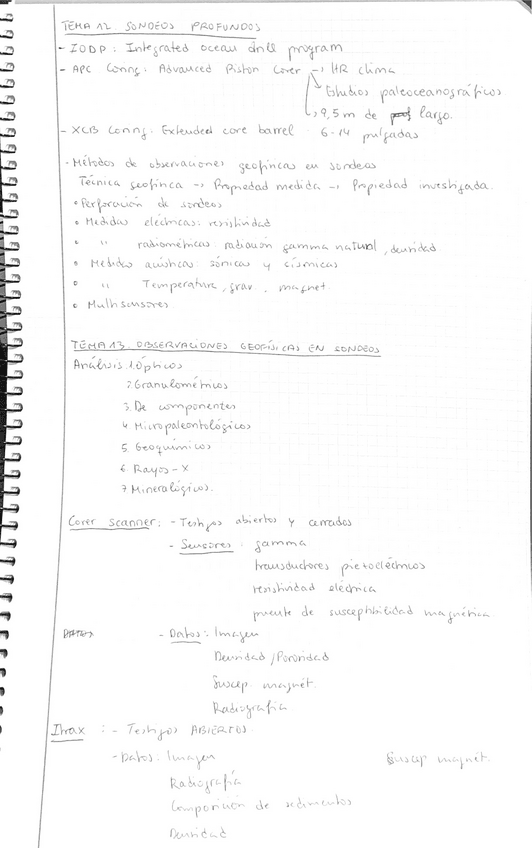 TEMA 12. SONDEOS PROFUNDOS
- IODP: Integrated ocean drill program
- APC Coring: Advanced Piston Corer → HR clima
↳ Estudios paleoceanográficos
↳ 9,5 m de largo.
- XCB Coring: Extended core barrel 6-14 pulgadas
- Métodos de observaciones geofísicas en sondeos
Técnica geofísica → Propiedad medida → Propiedad investigada.
• Perforación de sondeos
• Medidas eléctricas: resistividad
• " radiométricas: radiación gamma natural, densidad
• Medidas acústicas: sónicas y sísmicas
• " Temperature, grav, magnet.
• Multisensores
TEMA 13. OBSERVACIONES GEOFÍSICAS EN SONDEOS
Análisis 1. Ópticos
2. Granulométricos
3. De componentes
4 Micropaleontológicos
5. Geoquímicos
6. Rayos-X
7 Mineralógicos.
Corer scanner: - Testigos abiertos y cerrados
- Sensores: gamma
transductores piezoeléctricos
resistividad eléctrica
puente de susceptibilidad magnética
DATOS - Datos: Imagen
Densidad/Porosidad
Suscep. magnét.
Radiografía
Itrax: - Testigos ABIERTOS.
- Datos: Imagen Suscep magnet.
Radiografía
Composición de sedimentos
Densidad